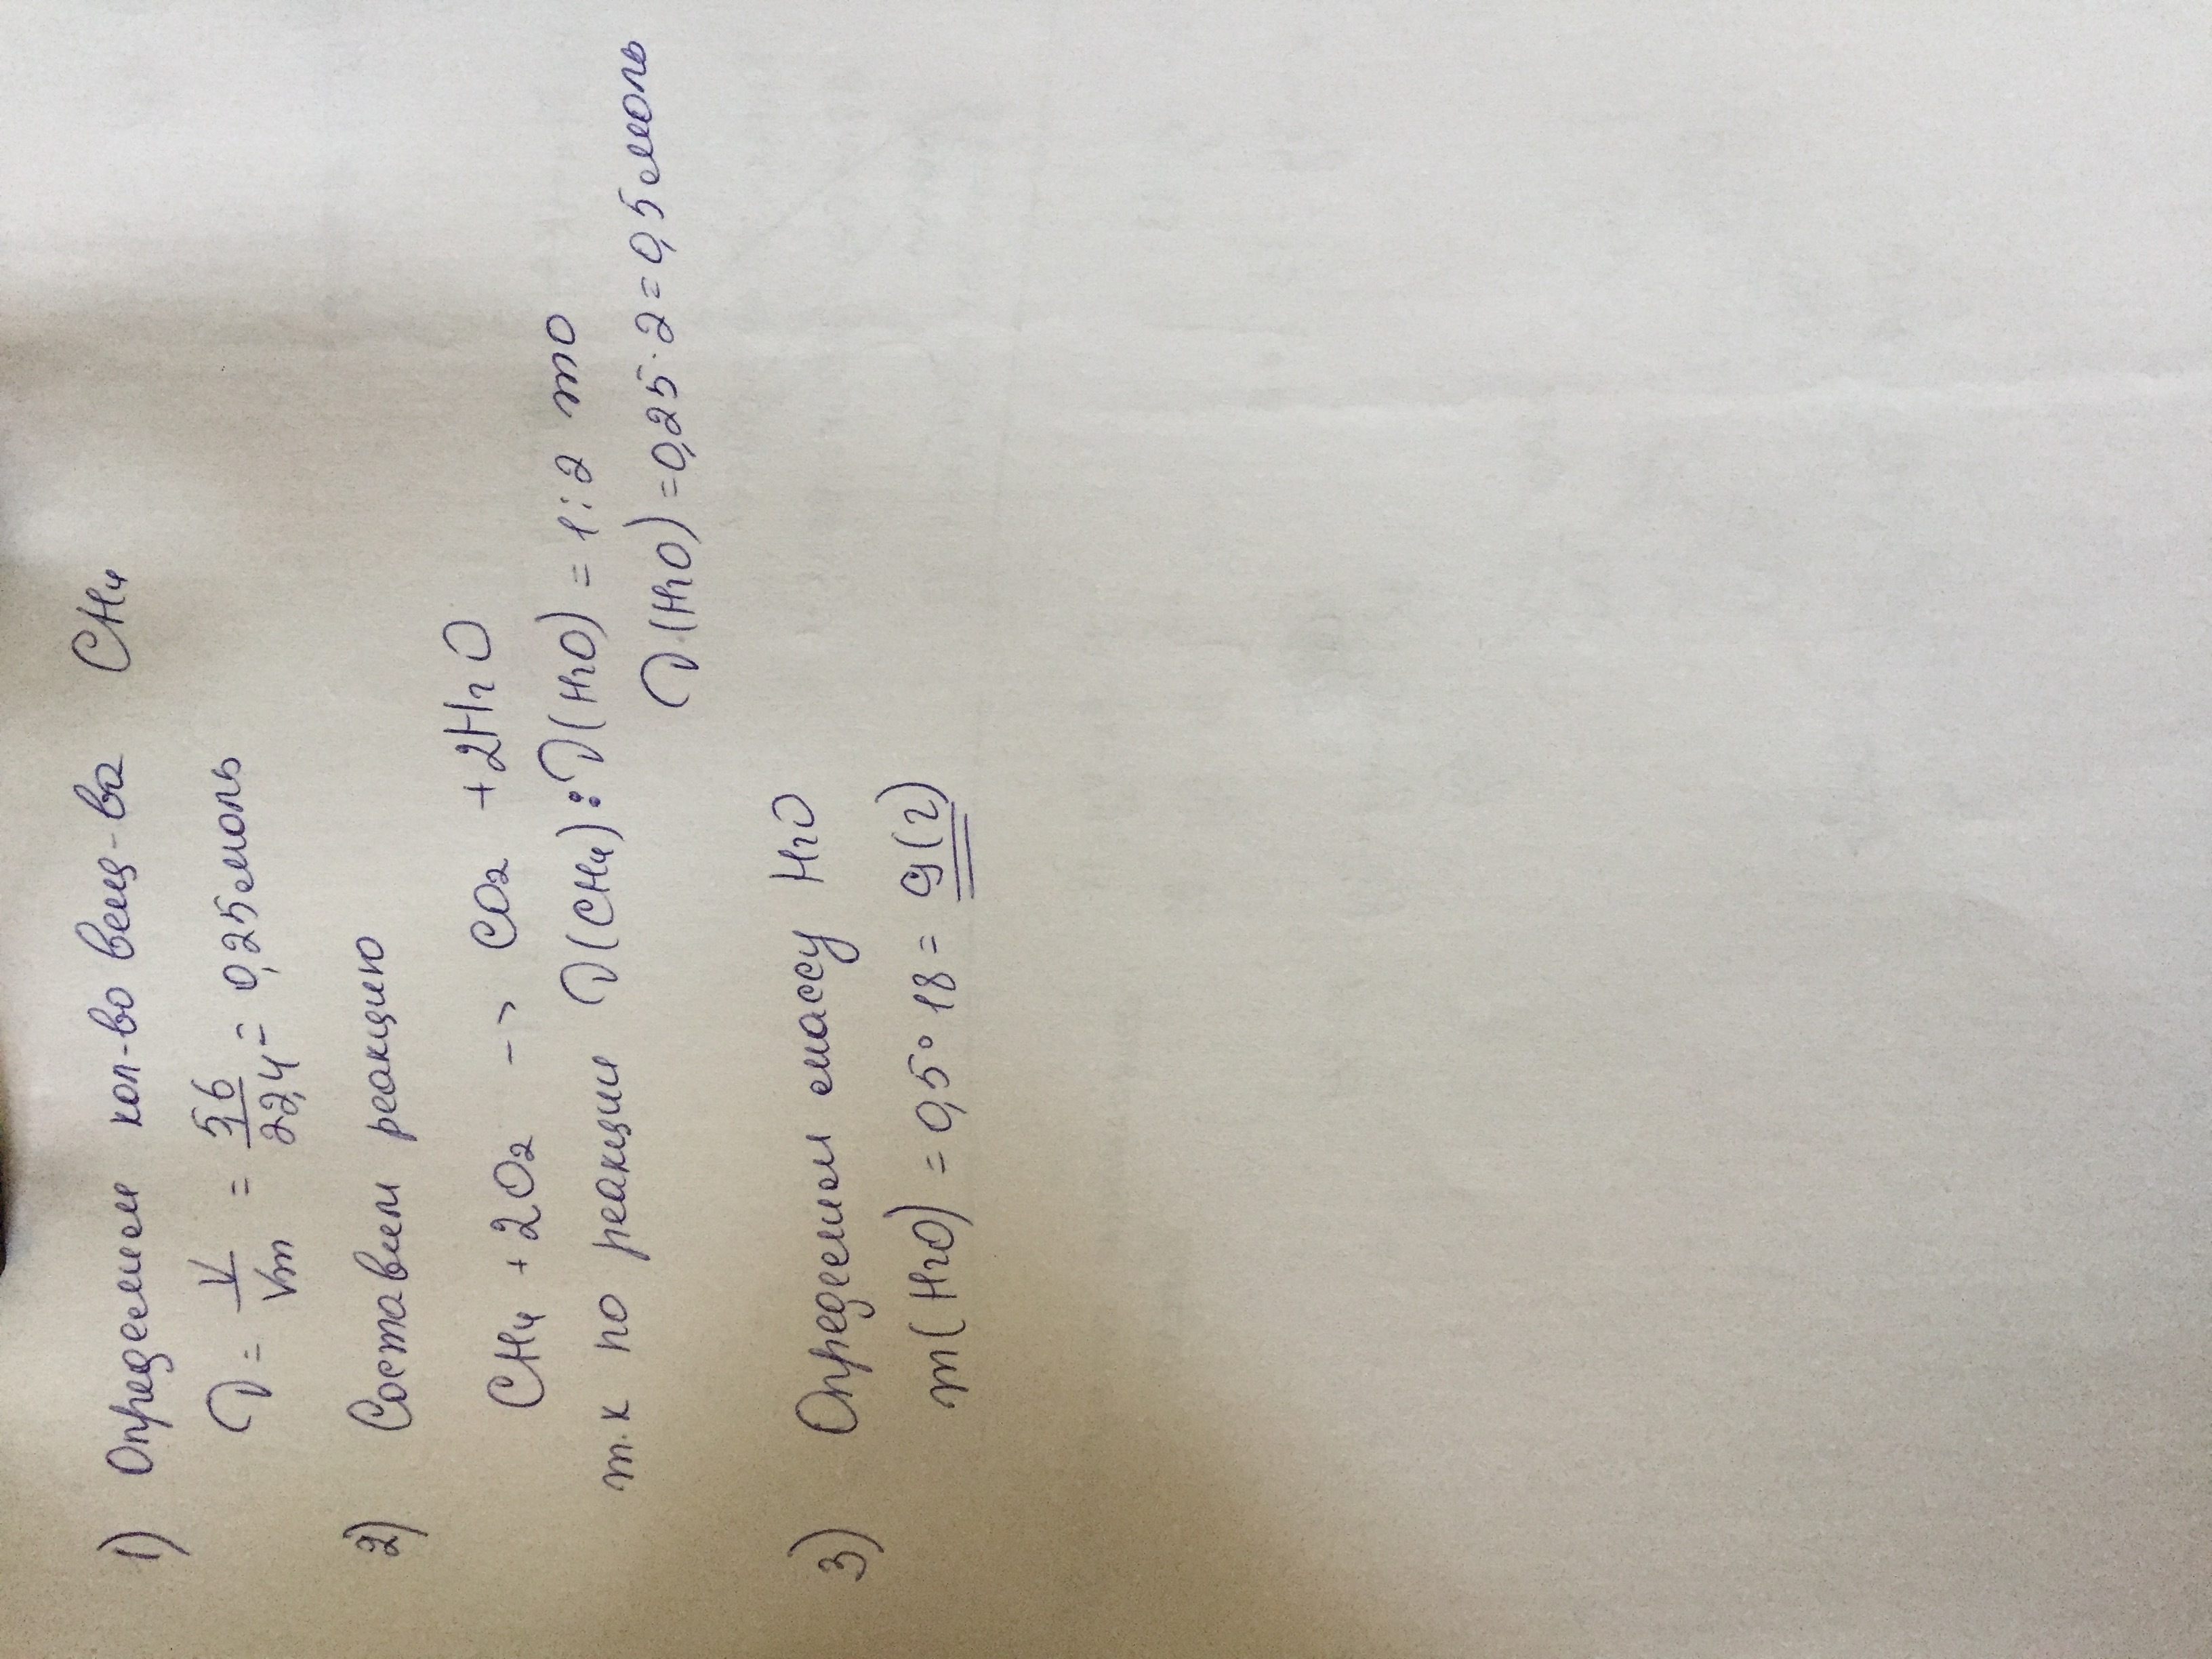 1) Определим кол-во вещ-ва CH₄
ν = V / Vm = 5,6 / 22,4 = 0,25 моль
2) Составим реакцию
CH₄ + 2O₂ → CO₂ + 2H₂O
т.к по реакции ν(CH₄) : ν(H₂O) = 1:2 то
ν(H₂O) = 0,25 · 2 = 0,5 моль
3) Определим массу H₂O
m(H₂O) = 0,5 · 18 = 9(г)